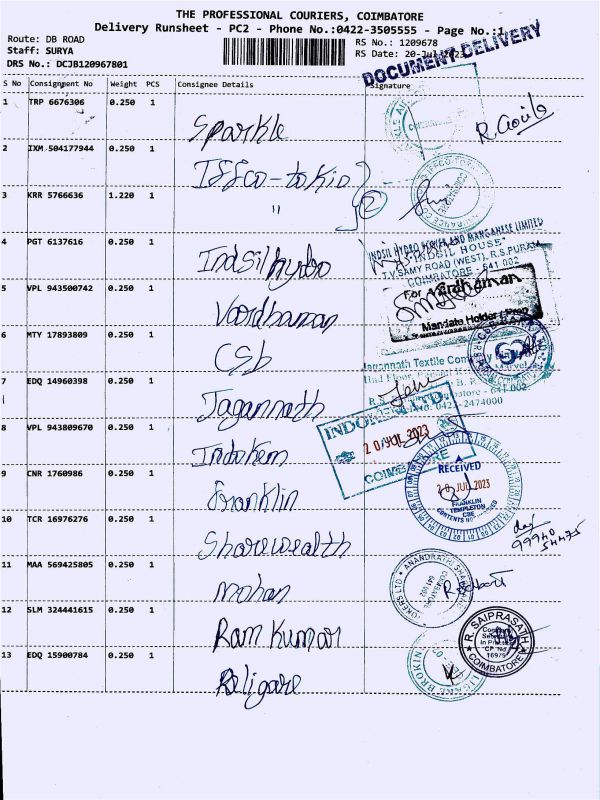 THE PROFESSIONAL COURIERS, COIMBATORE
Delivery Runsheet - PC2 - Phone No.:0422-3505555 - Page No.:1
Route: DB ROAD
RS No.: 1209678
Staff: SURYA
RS Date: 20-Jul-2023
DRS No.: DCJB120967801
DOCUMENT DELIVERY
S No Consignment No Weight PCS Consignee Details Signature
1 TRP 6676306 0.250 1 Sparkle
2 IXM 504177944 0.250 1 Iffco-tokio
3 KRR 5766636 1.220 1 " 2
4 PGT 6137616 0.250 1 Indsil hydro
INDSIL HYDRO POWER AND MANGANESE LIMITED
"INDSIL HOUSE"
T.V.SAMY ROAD (WEST), R.S.PURAM
COIMBATORE - 641 002
5 VPL 943500742 0.250 1 Vardhaman
For Vardhaman
Mandate Holder / Prop
6 MTY 17893809 0.250 1 CSb
Jagannath Textile Company
7 EDQ 14960398 0.250 1 Jagannath
8 VPL 943809670 0.250 1 Indokem
INDOKEM LTD
20 JUL 2023
COIMBATORE
9 CNR 1760986 0.250 1 Franklin
RECEIVED
20 JUL 2023
FRANKLIN
TEMPLETON
CBE
10 TCR 16976276 0.250 1 Sharewealth
99940
54475
11 MAA 569425805 0.250 1 Mohan
ANANDRATHI
COIMBATORE
641 002
12 SLM 324441615 0.250 1 Ram Kumar
R. SAIPRASATH
Company
Secretary
In Practice
CP No
16979
COIMBATORE
13 EDQ 15900784 0.250 1 Religare